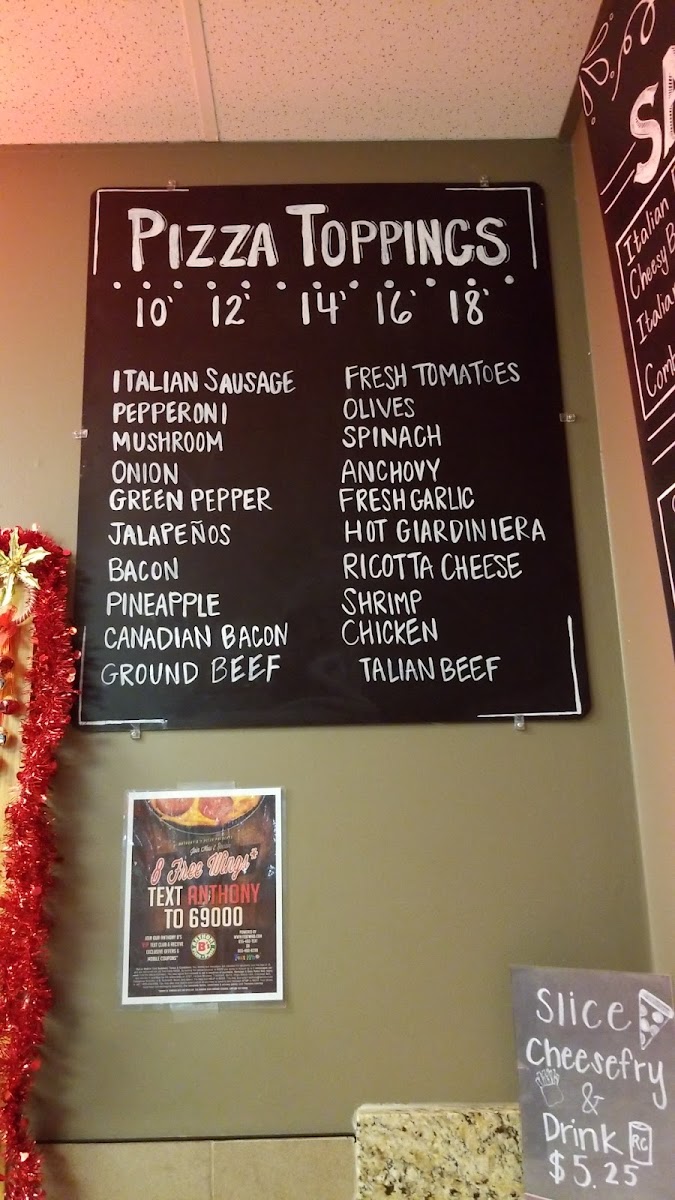 PIZZA TOPPINGS
10' 12' 14' 16' 18'
ITALIAN SAUSAGE
PEPPERONI
MUSHROOM
ONION
GREEN PEPPER
JALAPEÑOS
BACON
PINEAPPLE
CANADIAN BACON
GROUND BEEF
FRESH TOMATOES
OLIVES
SPINACH
ANCHOVY
FRESH GARLIC
HOT GIARDINIERA
RICOTTA CHEESE
SHRIMP
CHICKEN
TALIAN BEEF
Italian
Cheesy B
Italian
Comb
8 Free Wings*
TEXT ANTHONY
TO 69000
JOIN OUR ANTHONY B'S
VIP TEXT CLUB & RECEIVE
EXCLUSIVE OFFERS &
MOBILE COUPONS*
B's
Slice
Cheesefry
&
Drink RC
$5.25